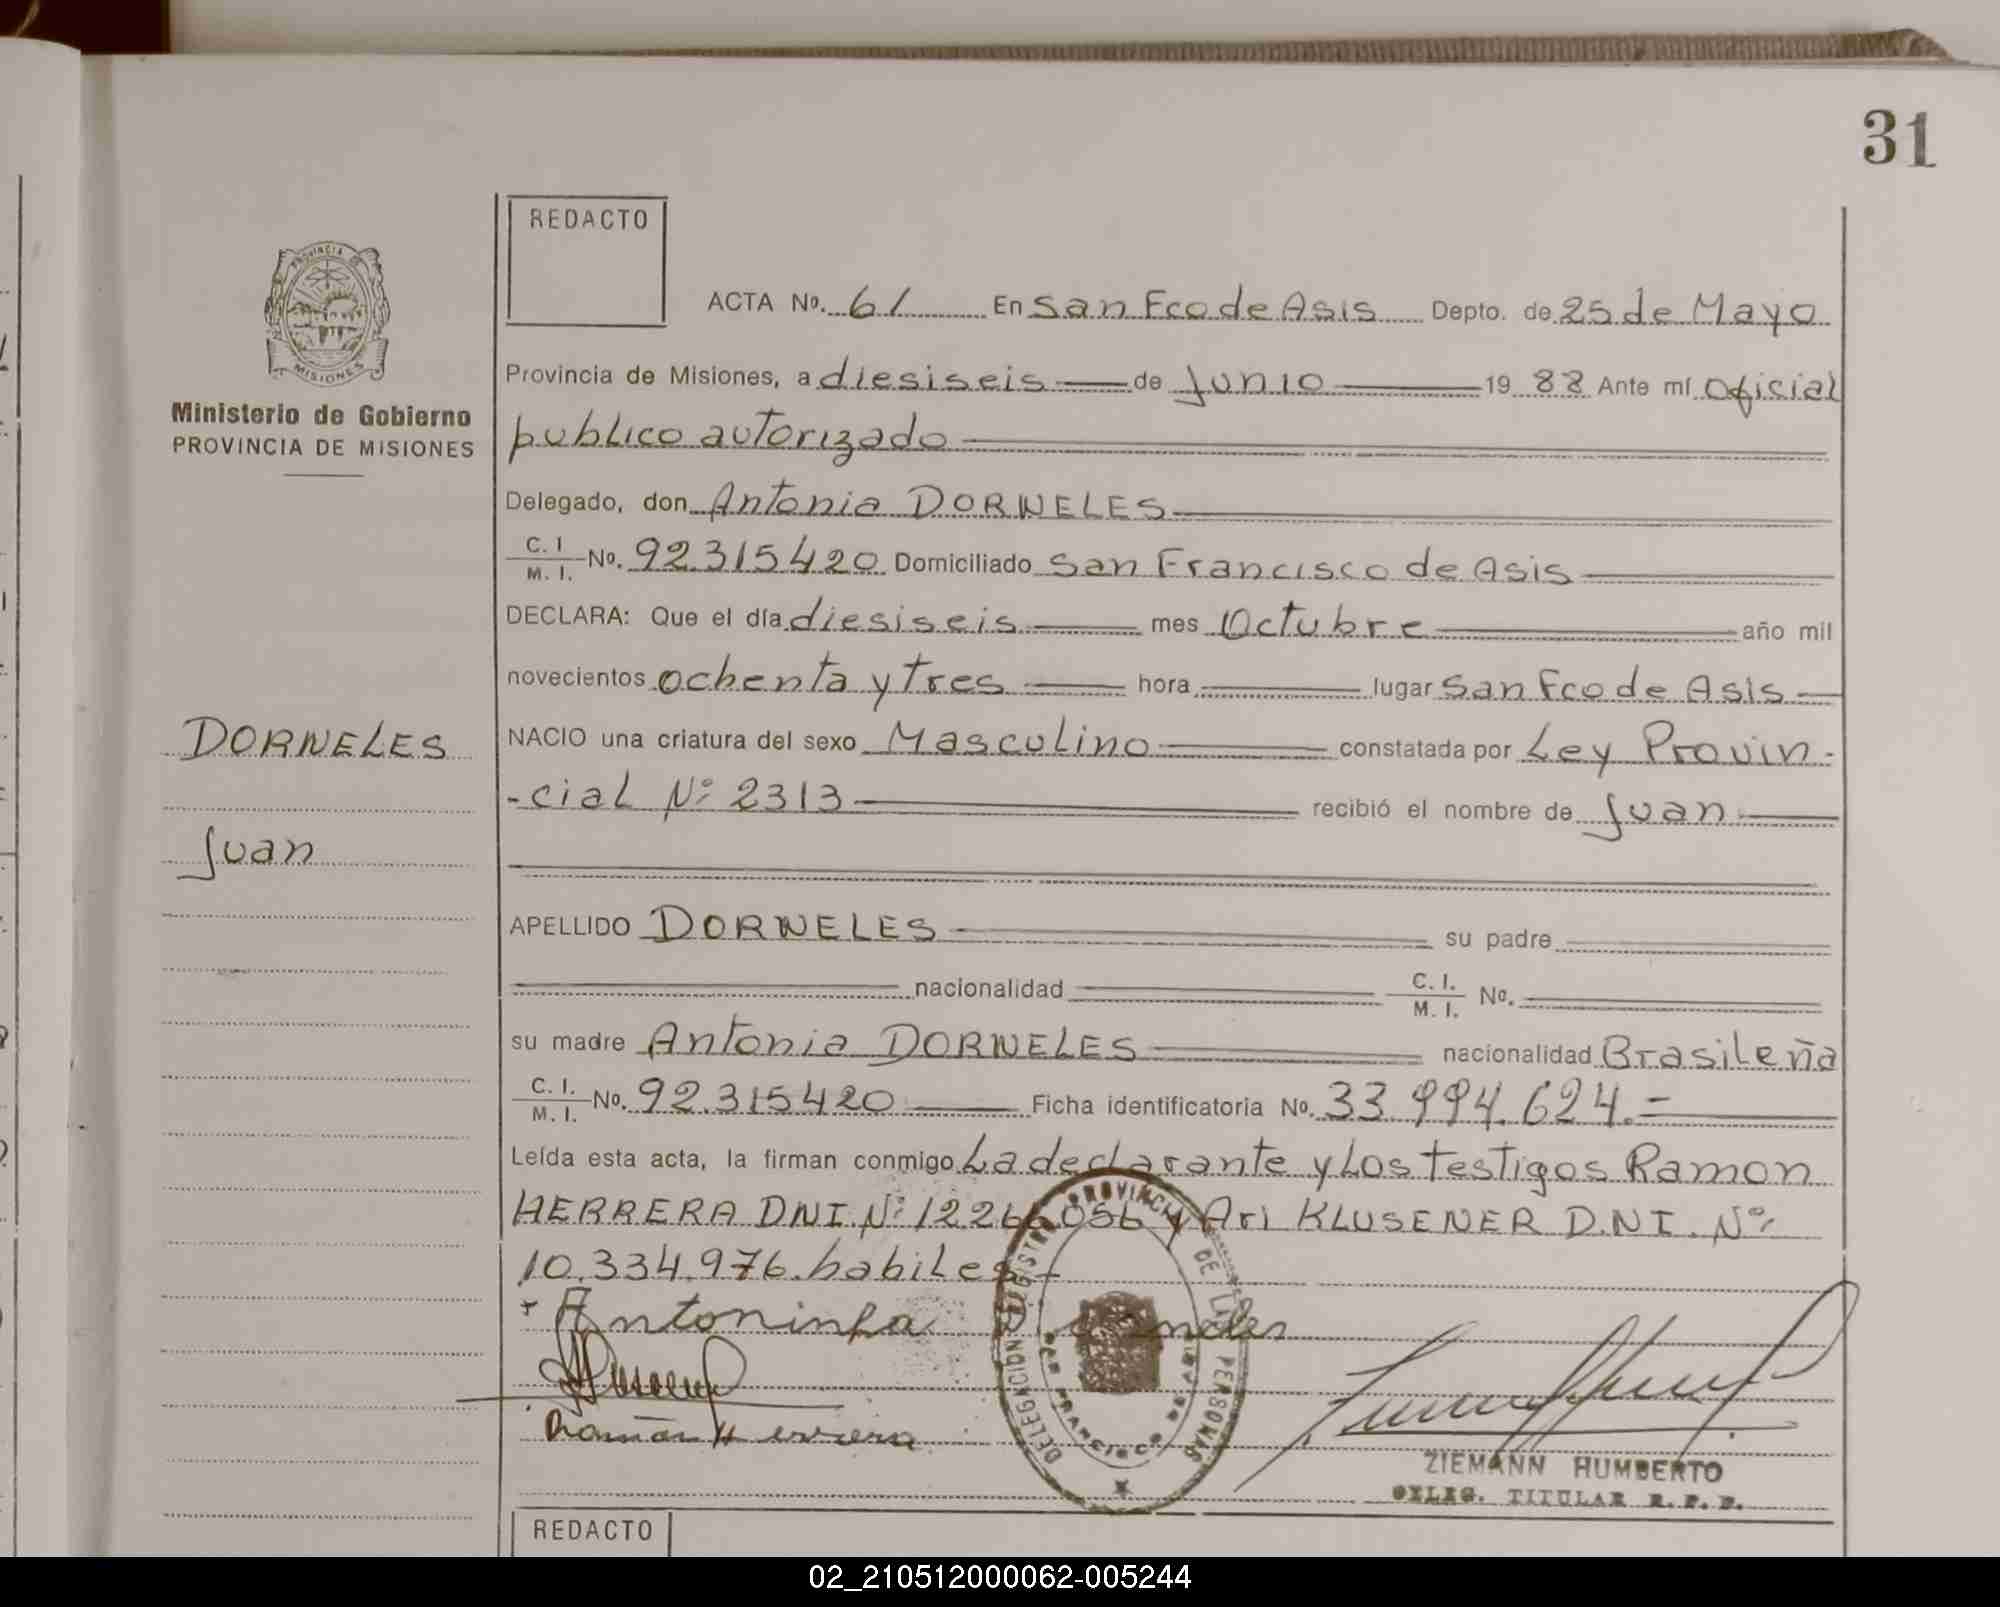 31
REDACTO
PROVINCIA DE
MISIONES
Ministerio de Gobierno
PROVINCIA DE MISIONES
DORNELES
Juan
ACTA No. 61 En San Fco de Asis Depto. de 25 de Mayo
Provincia de Misiones, a diesiseis de Junio 19 88 Ante mí Oficial
publico autorizado
Delegado, don Antonia DORNELES
C. I. M. I. No. 92.315420 Domiciliado San Francisco de Asis
DECLARA: Que el día diesiseis mes Octubre año mil
novecientos ochenta y tres hora lugar San Fco de Asis
NACIO una criatura del sexo Masculino constatada por Ley Provin-
-cial Nº 2313 recibió el nombre de Juan
APELLIDO DORNELES su padre
nacionalidad C. I. M. I. No.
su madre Antonia DORNELES nacionalidad Brasileña
C. I. M. I. No. 92.315420 Ficha identificatoria No. 33.994.624.=
Leída esta acta, la firman conmigo La declarante y Los testigos Ramon
HERRERA DNI. Nº 12266056 y Ari KLUSENER D.N.I. Nº
10.334.976. habiles.-
+ Antoninha
Román Herrera
DELEGACION REGISTRO PROVINCIAL DE LAS PERSONAS
SAN FRANCISCO DE ASIS
ZIEMANN HUMBERTO
DELEG. TITULAR R. P. P.
REDACTO
02_210512000062-005244